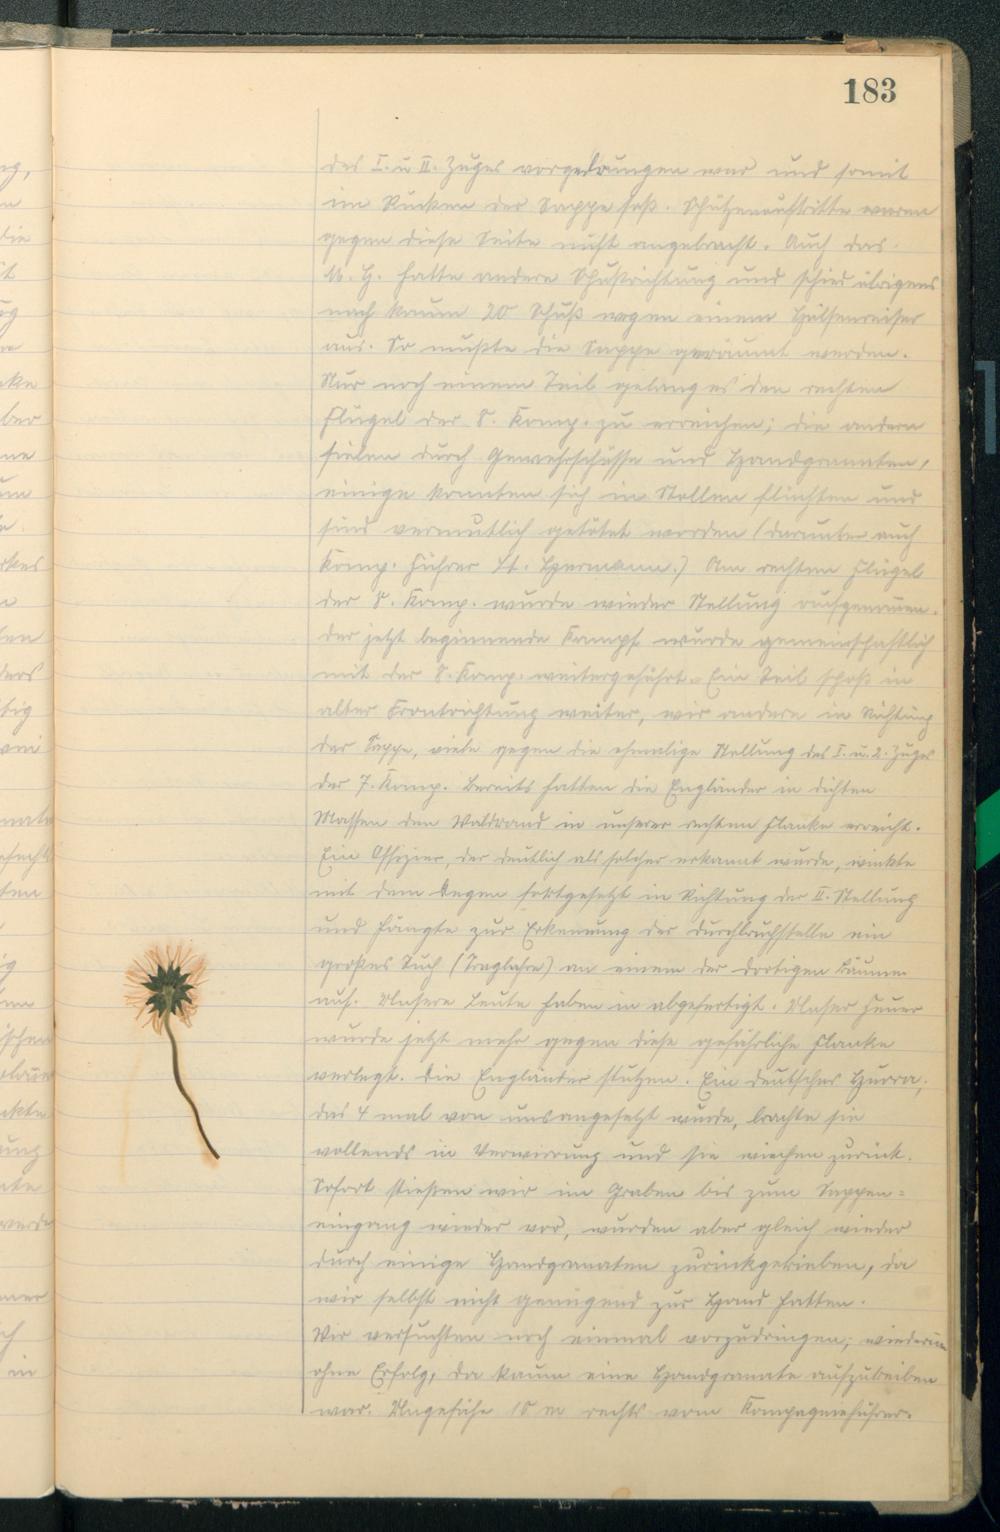 183
des I. u. II. Zuges vorgedrungen war und somit
im Rücken der Sappe saß. Schützenauftritte waren
gegen diese Seite nicht angebracht. Auch das
M. G. hatte andere Schußrichtung und schied übrigens
nach kaum 20 Schuß wegen einem Hülsenreißer
aus. So mußte die Sappe geräumt werden.
Nur noch einem Teil gelang es den rechten
Flügel der 8. Komp. zu erreichen; die andern
fielen durch Gewehrschüsse und Handgranaten,
einige konnten sich in Stollen flüchten und
sind vermutlich getötet worden (darunter auch
Komp. Führer Lt. Hermann.) Am rechten Flügel
der 8. Komp. wurde wieder Stellung aufgenommen.
Der jetzt beginnende Kampf wurde gemeinschaftlich
mit der 8. Komp. weitergeführt. Ein Teil schoß in
alter Frontrichtung weiter, wir andere in Richtung
der Sappe, viele gegen die ehmalige Stellung des I. u. 2. Zuges
der 7. Komp. Bereits hatten die Engländer in dichten
Massen den Waldrand in unserer rechten Flanke erreicht.
Ein Offizier, der deutlich als solcher erkannt wurde, winkte
mit dem Degen fortgesetzt in Richtung der II. Stellung
und hängte zur Erkennung der Durchbruchstelle ein
großes Tuch (Tragbahre) an einem der dortigen Bäume
auf. Unsere Leute haben in abgefertigt. Unser Feuer
wurde jetzt mehr gegen diese gefährliche Flanke
verlegt. Die Engländer stutzen. Ein deutsches Hurra,
das 4 mal von uns angesetzt wurde, brachte sie
vollends in Verwirrung und sie wichen zurück.
Sofort stießen wir im Graben bis zum Sappen=
eingang wieder vor, wurden aber gleich wieder
durch einige Handgranaten zurückgetrieben, da
wir selbst nicht genügend zur Hand hatten.
Wir versuchten noch einmal vorzudringen; wiederum
ohne Erfolg, da kaum eine Handgranate aufzutreiben
war. Ungefähr 10 m rechts vom Kompagnieführer-